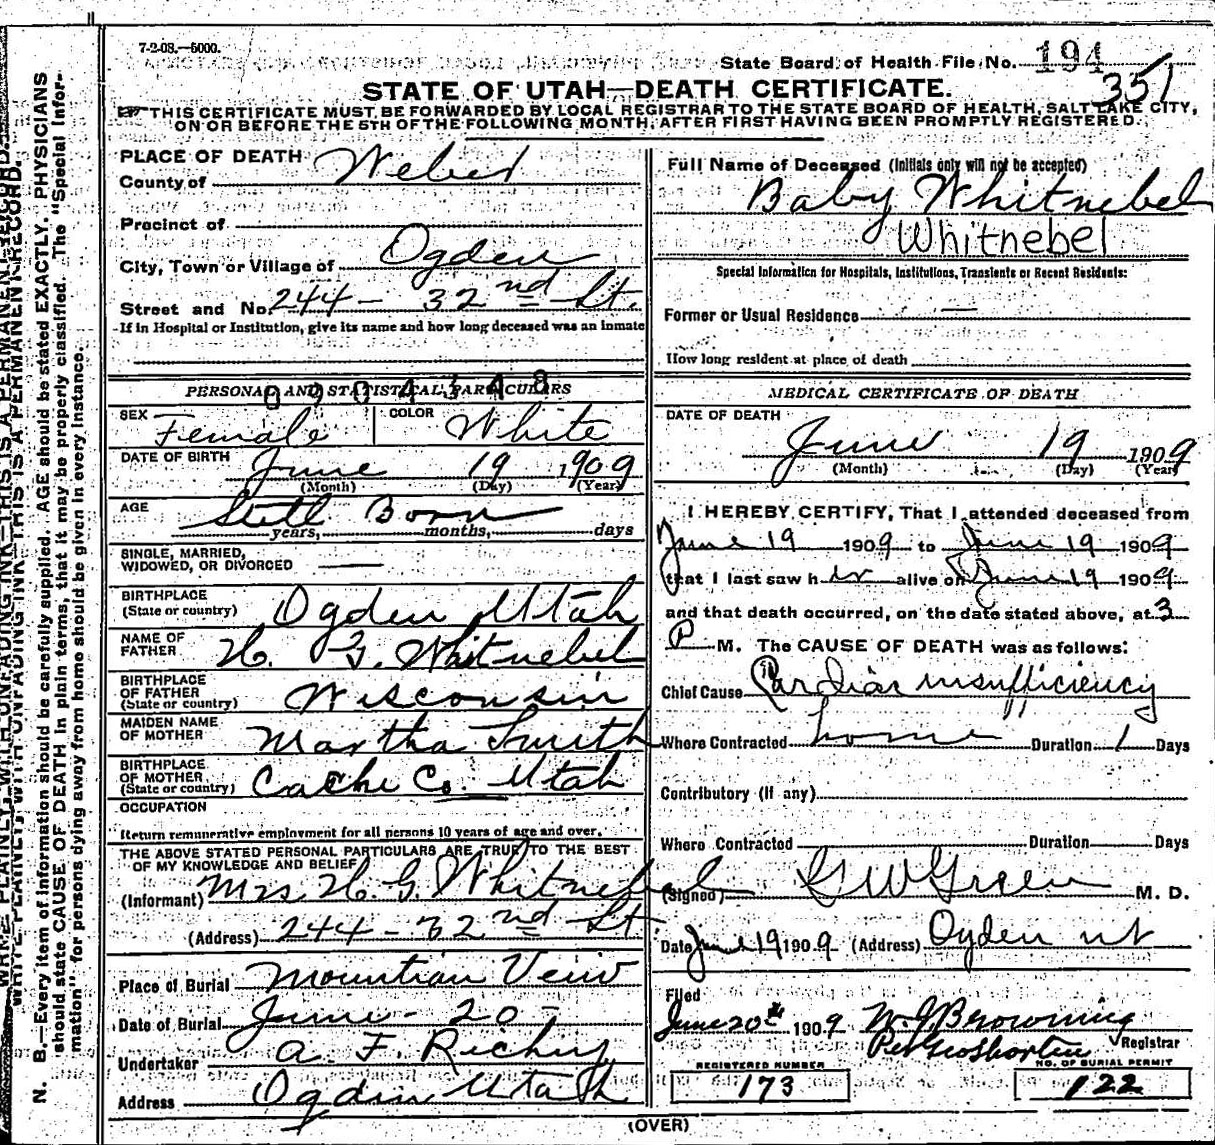 7-2-08.—5000.
State Board of Health File No. 194
351
STATE OF UTAH—DEATH CERTIFICATE.
THIS CERTIFICATE MUST BE FORWARDED BY LOCAL REGISTRAR TO THE STATE BOARD OF HEALTH, SALT LAKE CITY,
ON OR BEFORE THE 5TH OF THE FOLLOWING MONTH, AFTER FIRST HAVING BEEN PROMPTLY REGISTERED.
WRITE PLAINLY WITH UNFADING INK—THIS IS A PERMANENT RECORD.
N. B.—Every item of information should be carefully supplied. AGE should be stated EXACTLY. PHYSICIANS
should state CAUSE OF DEATH in plain terms, that it may be properly classified. The "Special Infor-
mation" for persons dying away from home should be given in every instance.
PLACE OF DEATH
County of Weber
Precinct of
City, Town or Village of Ogden
Street and No. 244 - 32nd St.
If in Hospital or Institution, give its name and how long deceased was an inmate
PERSONAL AND STATISTICAL PARTICULARS
0904348
SEX Female COLOR White
DATE OF BIRTH June 19 1909
(Month) (Day) (Year)
AGE Still Born
years, months, days
SINGLE, MARRIED,
WIDOWED, OR DIVORCED —
BIRTHPLACE
(State or country) Ogden Utah
NAME OF
FATHER H. G. Whitnebel
BIRTHPLACE
OF FATHER
(State or country) Wisconsin
MAIDEN NAME
OF MOTHER Martha Smith
BIRTHPLACE
OF MOTHER
(State or country) Cache Co. Utah
OCCUPATION
Return remunerative employment for all persons 10 years of age and over.
THE ABOVE STATED PERSONAL PARTICULARS ARE TRUE TO THE BEST
OF MY KNOWLEDGE AND BELIEF
(Informant) Mrs H. G. Whitnebel
(Address) 244 - 32nd St
Place of Burial Mountian Veiw
Date of Burial June - 20 -
Undertaker A. F. Richey
Address Ogden Utah
Full Name of Deceased (Initials only will not be accepted)
Baby Whitnebel
Whitnebel
Special Information for Hospitals, Institutions, Transients or Recent Residents:
Former or Usual Residence —
How long resident at place of death
MEDICAL CERTIFICATE OF DEATH
DATE OF DEATH
June 19 1909
(Month) (Day) (Year)
I HEREBY CERTIFY, That I attended deceased from
June 19 1909 to June 19 1909
that I last saw her alive on June 19 1909
and that death occurred, on the date stated above, at 3
P M. The CAUSE OF DEATH was as follows:
Chief Cause Cardiac insufficiency
Where Contracted home Duration 1 Days
Contributory (if any)
Where Contracted Duration Days
(Signed) G W Green M. D.
Date June 19 1909 (Address) Ogden ut
Filed
June 20th 1909 W. J. Browning
Registrar
REGISTERED NUMBER
173
NO. OF BURIAL PERMIT
122
(OVER)